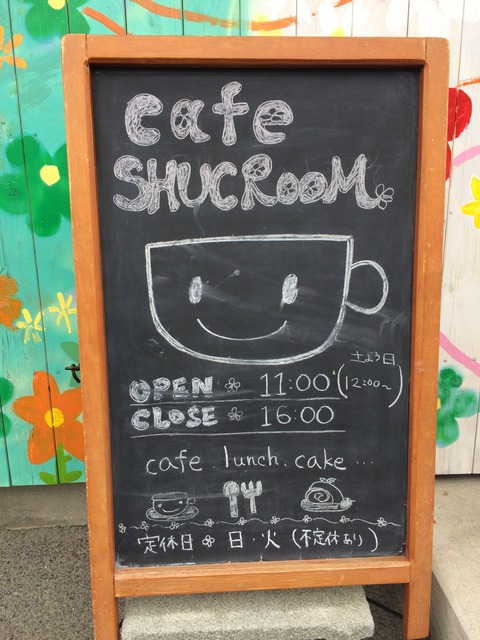 cafe
SHUCRooM
OPEN 11:00 (土よう日 12:00~)
CLOSE 16:00
cafe. lunch. cake...
定休日 日・火 (不定休あり)